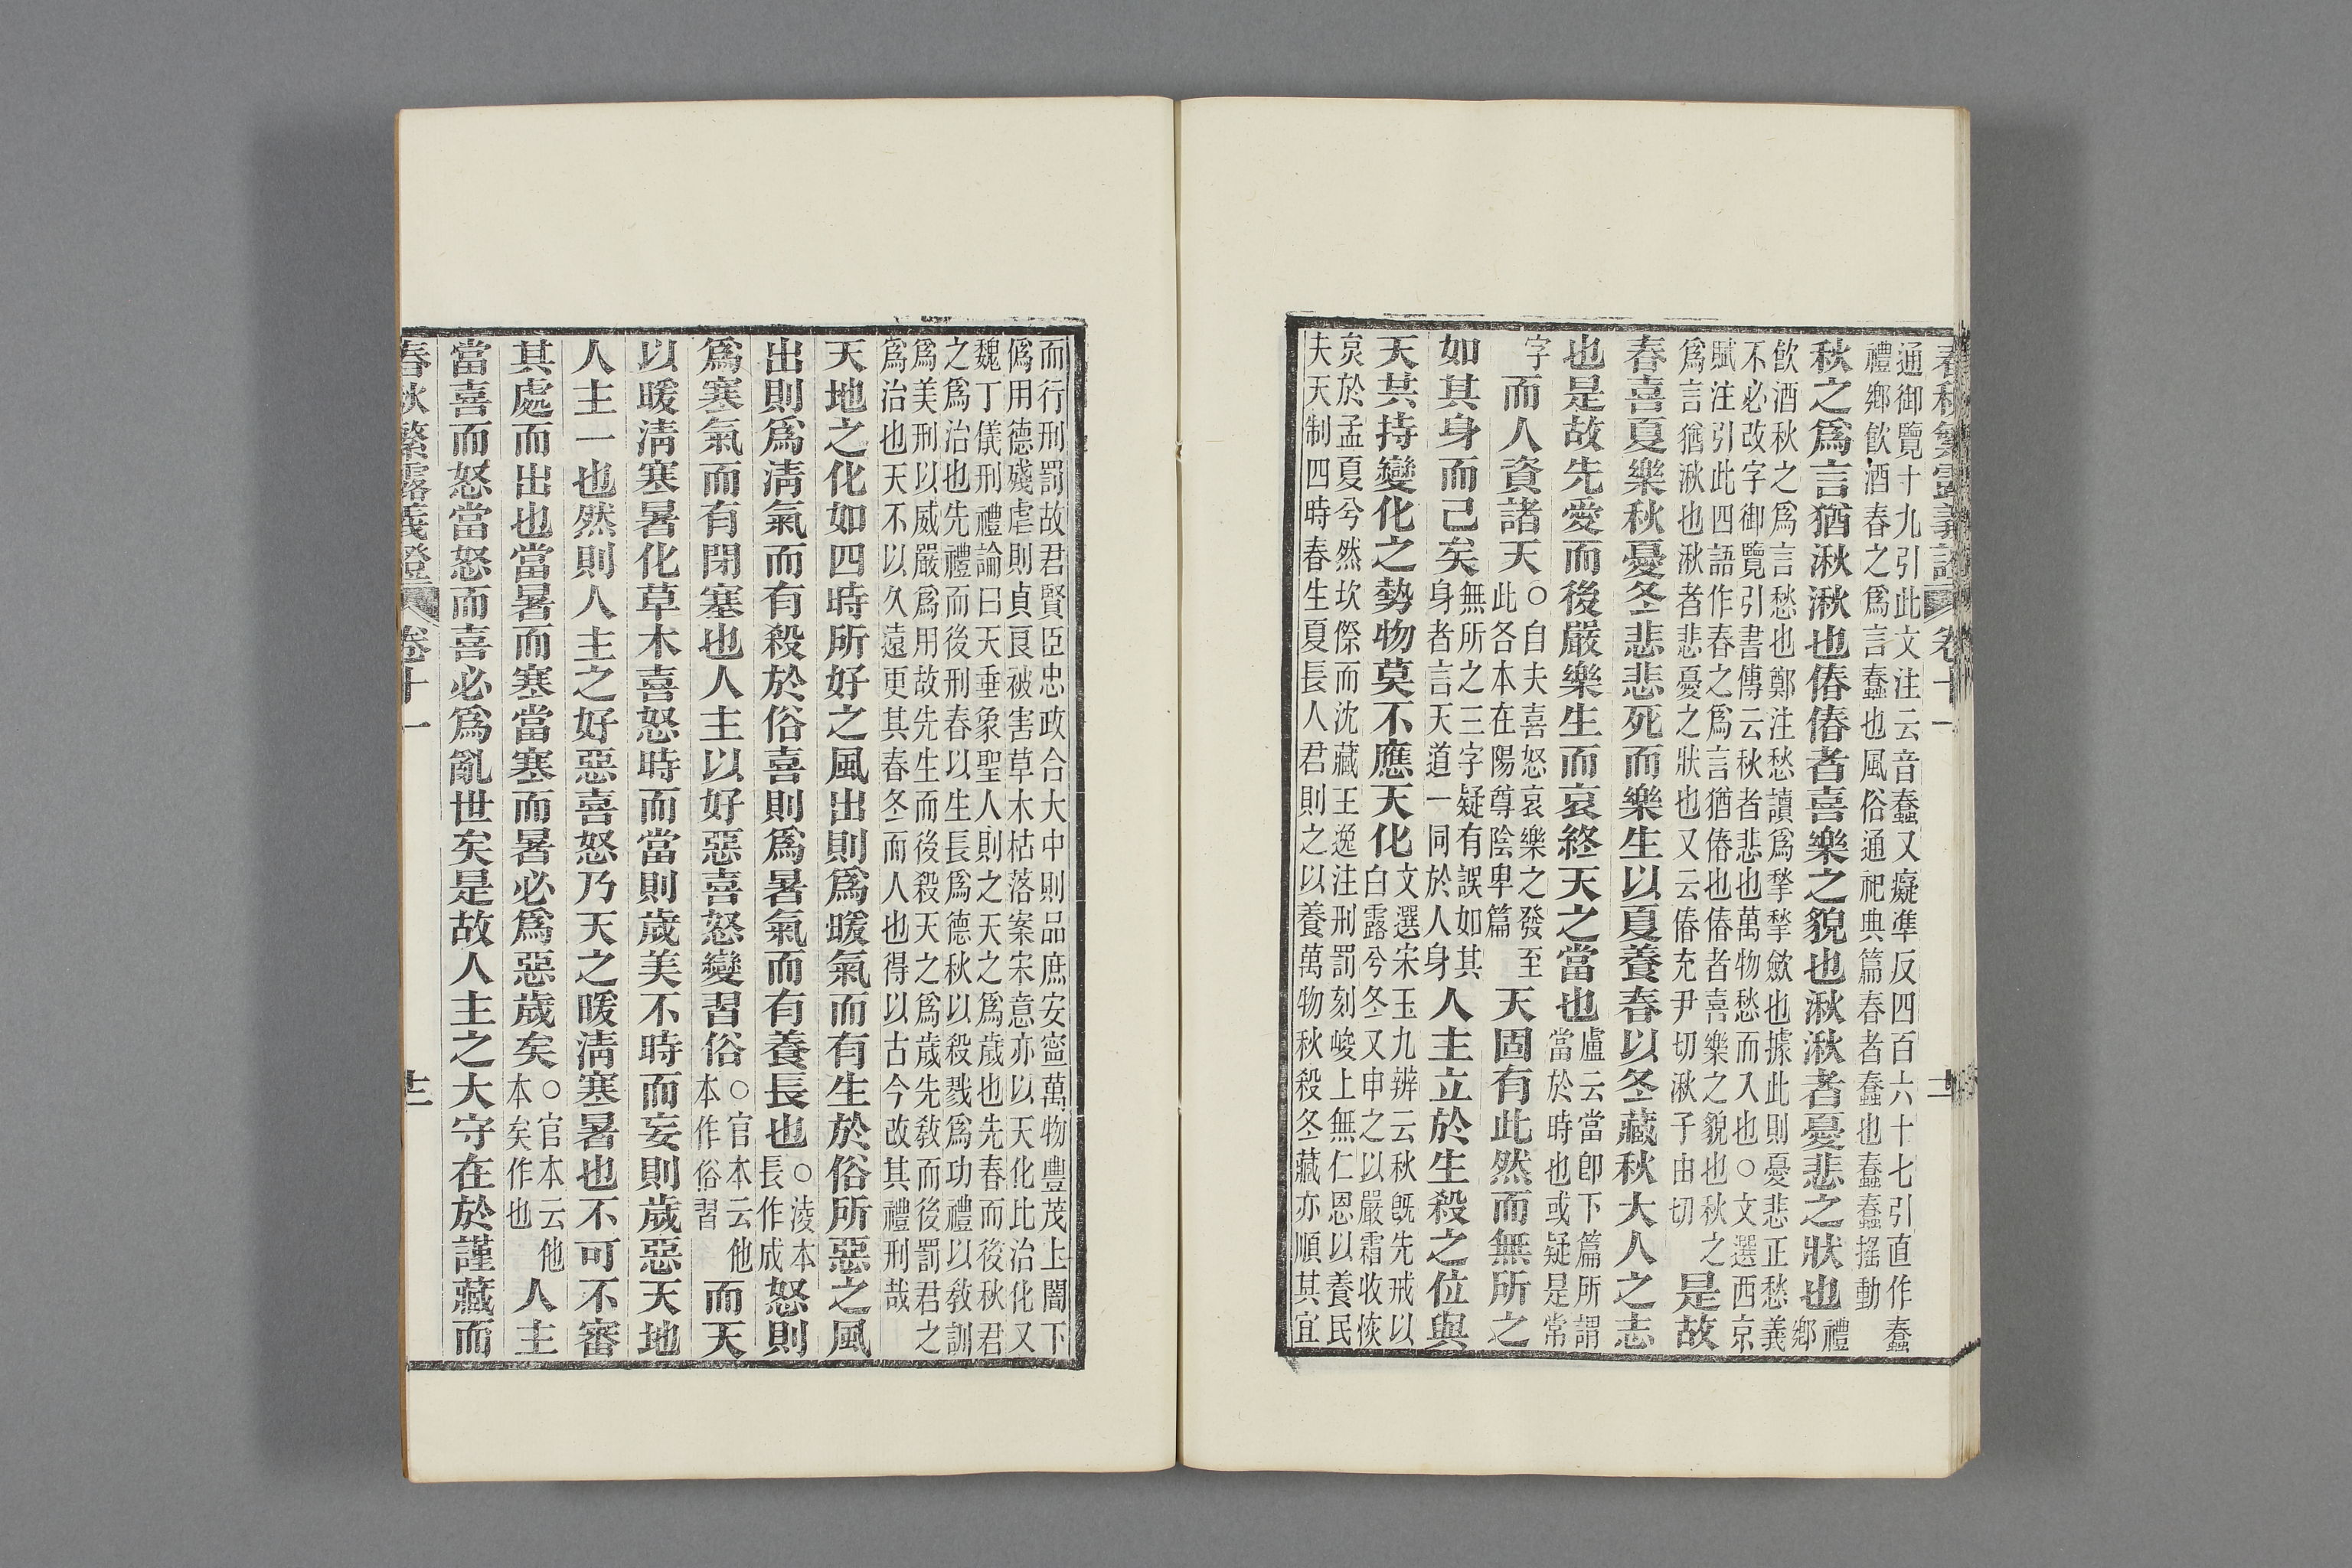 春秋繁露義證　卷十一　二
通御覽十九引此文注云音蠢又癡準反四百六十七引直作蠢
禮鄉飲酒春之爲言蠢也風俗通祀典篇春者蠢也蠢蠢搖動
秋之爲言猶湫湫也偆偆者喜樂之貌也湫湫者憂悲之狀也禮鄉
飲酒秋之爲言愁也鄭注愁讀爲揫揫斂也據此則憂悲正愁義
不必改字御覽引書傳云秋者悲也萬物愁而入也○文選西京
賦注引此四語作春之爲言猶偆也偆者喜樂之貌也秋之
爲言猶湫也湫者悲憂之狀也又云偆充尹切湫子由切是故
春喜夏樂秋憂冬悲悲死而樂生以夏養春以冬藏秋大人之志
也是故先愛而後嚴樂生而哀終天之當也盧云當卽下篇所謂當於時也或疑是常
字而人資諸天○自夫喜怒哀樂之發至此各本在陽尊陰卑篇天固有此然而無所之
如其身而己矣無所之三字疑有誤如其身者言天道一同於人身人主立於生殺之位與
天共持變化之勢物莫不應天化文選宋玉九辨云秋旣先戒以白露兮冬又申之以嚴霜收恢
炱於孟夏兮然坎傺而沈藏王逸注刑罰刻峻上無仁恩以養民
夫天制四時春生夏長人君則之以養萬物秋殺冬藏亦順其宜
而行刑罰故君賢臣忠政合大中則品庶安寧萬物豐茂上闇下
僞用德殘虐則貞良被害草木枯落案宋意亦以天化比治化又
魏丁儀刑禮論曰天垂象聖人則之天之爲歲也先春而後秋君
之爲治也先禮而後刑春以生長爲德秋以殺戮爲功禮以敎訓
爲美刑以威嚴爲用故先生而後殺天之爲歲先敎而後罰君之
爲治也天不以久遠更其春冬而人也得以古今改其禮刑哉
天地之化如四時所好之風出則爲暖氣而有生於俗所惡之風
出則爲淸氣而有殺於俗喜則爲暑氣而有養長也○淩本長作成怒則
爲寒氣而有閉塞也人主以好惡喜怒變習俗○官本云他本作俗習而天
以暖淸寒暑化草木喜怒時而當則歲美不時而妄則歲惡天地
人主一也然則人主之好惡喜怒乃天之暖淸寒暑也不可不審
其處而出也當暑而寒當寒而暑必爲惡歲矣○官本云他本矣作也人主
當喜而怒當怒而喜必爲亂世矣是故人主之大守在於謹藏而
春秋繁露義證　卷十一　十二